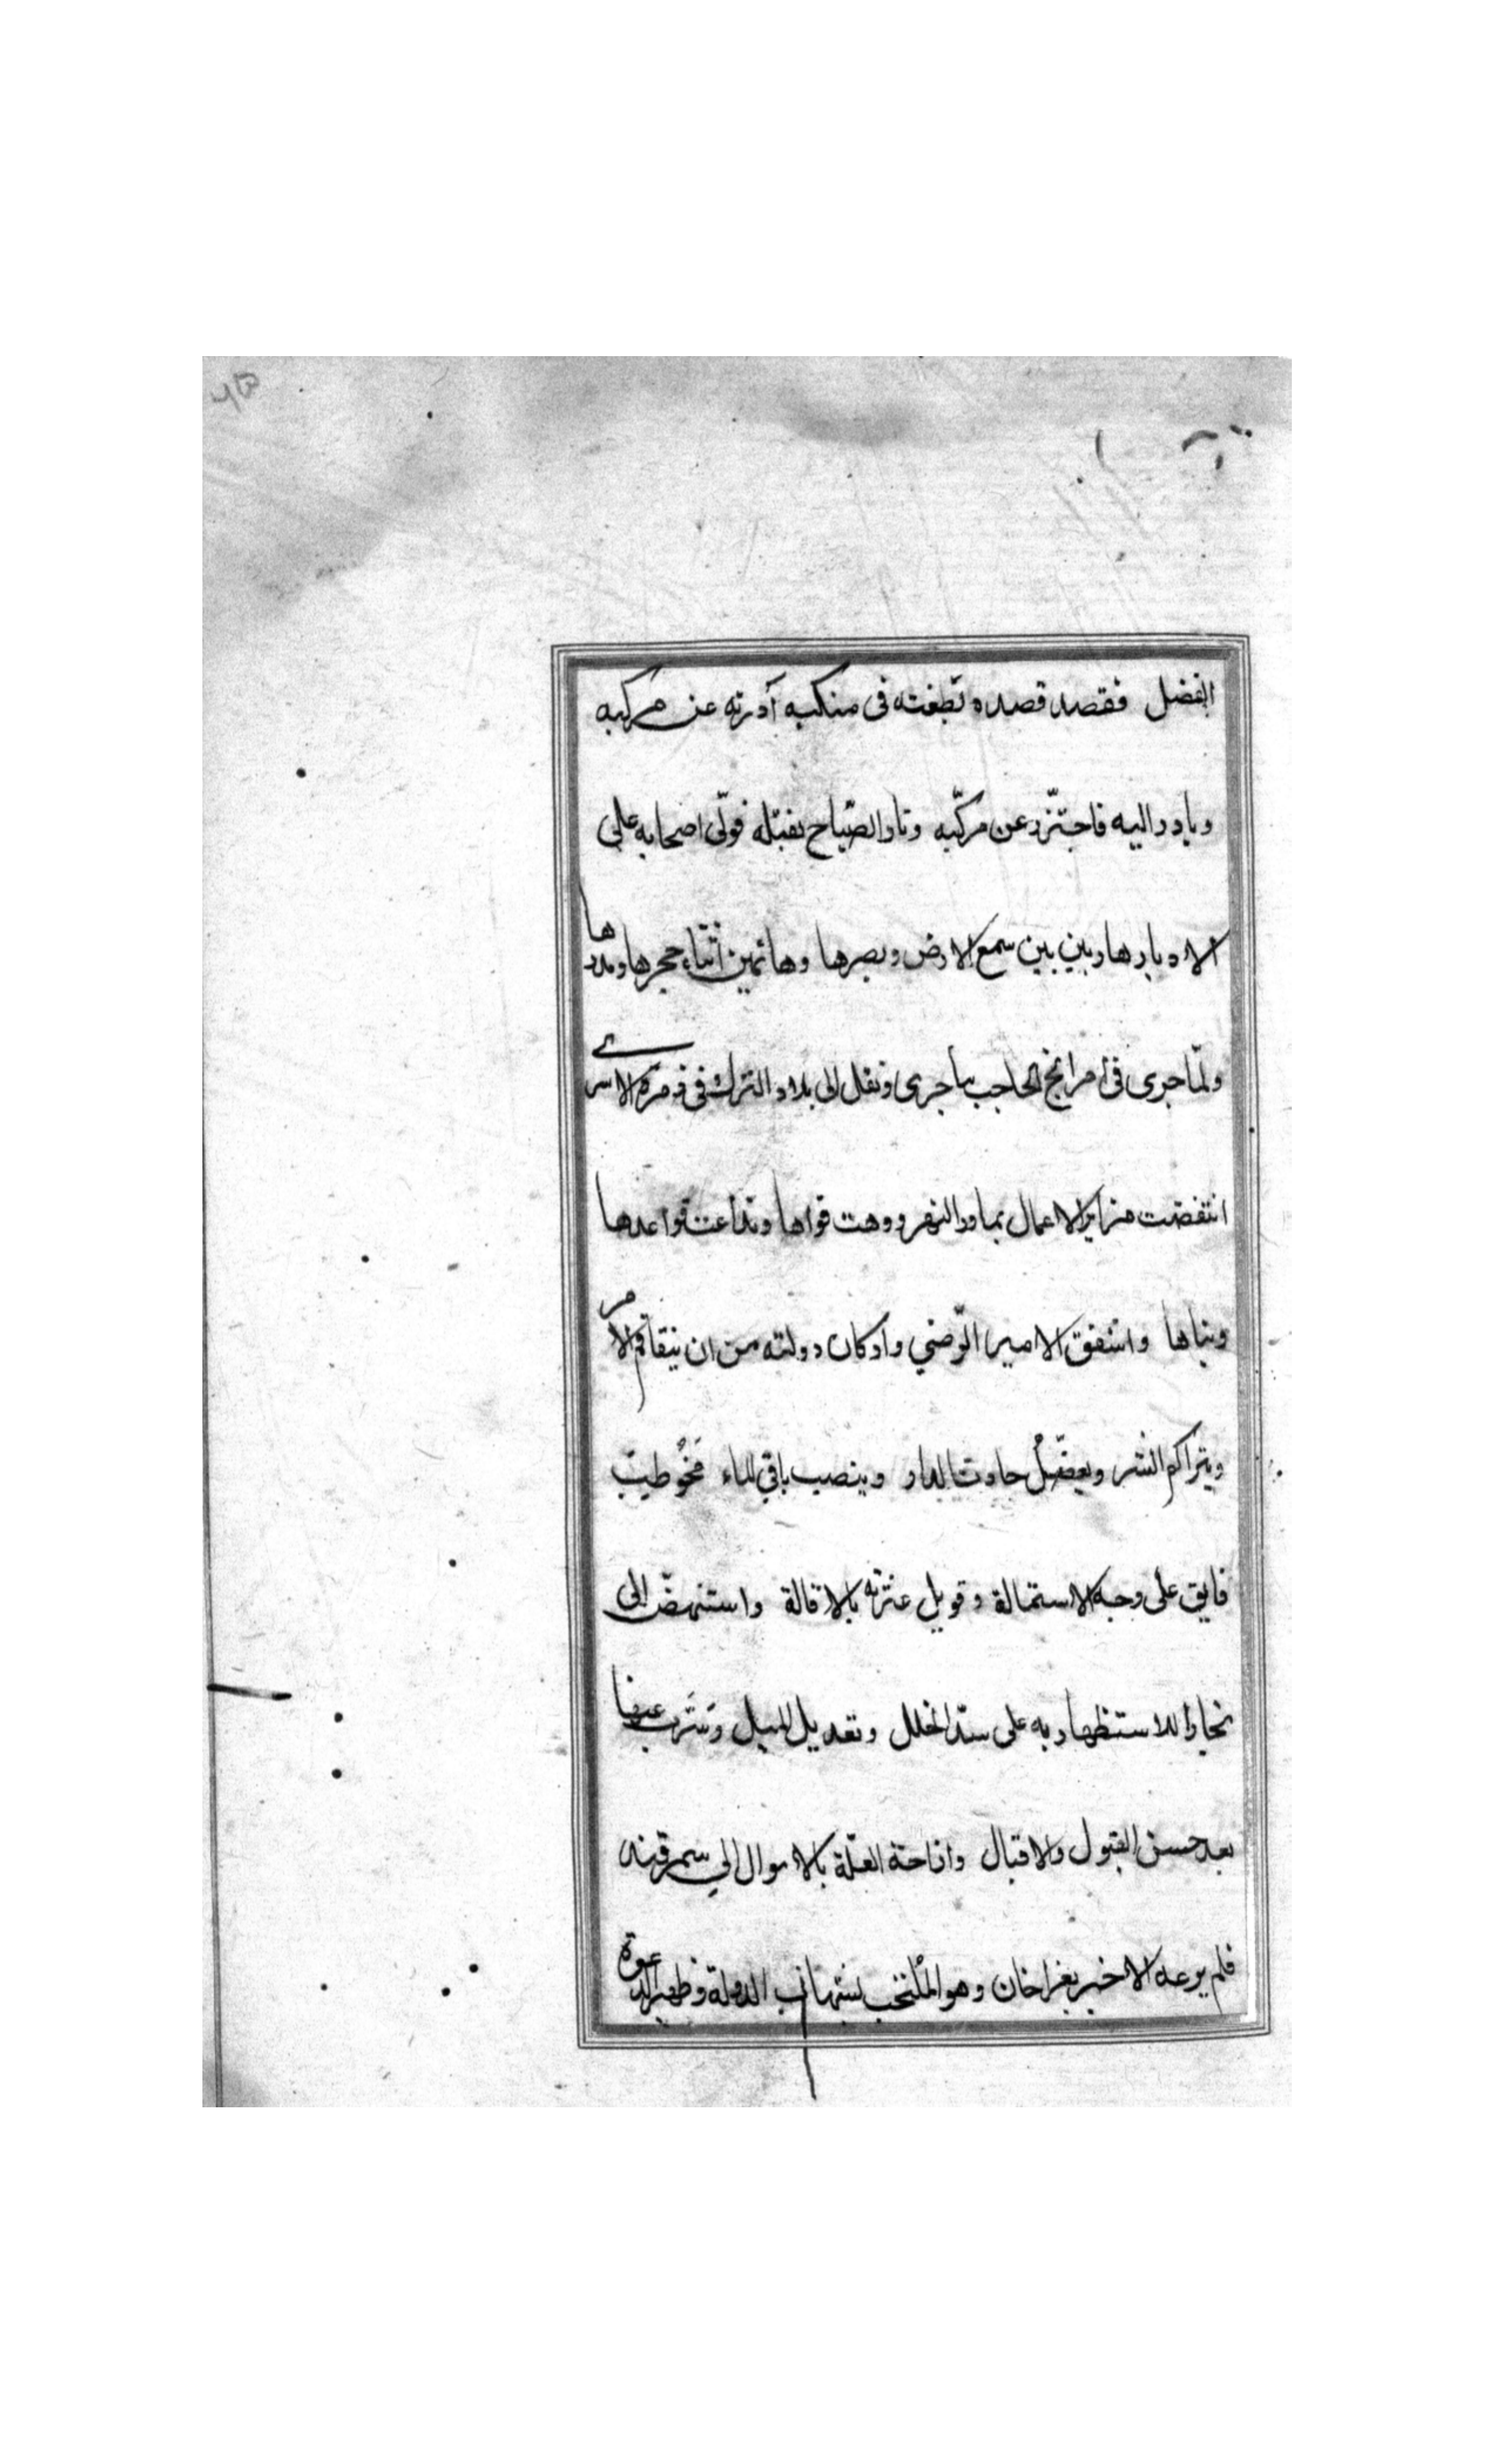 الفضل فقصد قصده وطعنه فى منكبه آذرته عن مركبه
وبادر اليه فاحتز عن مركّبه ونادا لصّباح بقتله فولّى اصحابه على
الادبار هاربين بين سمع الارض وبصرها وهائمين اثناء حجرها ومدرها
ولمّا جرى فى امر انج الحاجب ما جرى ونقل الى بلاد الترك فى زمرة الاسرى
انتقضت مزاير الاعمال بماورالنهر ووهت قواها وتداعت قواعدها
وبناها واشفق الامير الرّضي واركان دولته من ان يتفاقم الامر
ويتراكم الشر ويعضّل حادث الدار وينصب باقي الماء فخُوطب
فايق على وجه الاستمالة وقوبل عثرته بالاقالة واستنهض الى
بخارا للاستظهار به على سدّ الخلل وتعديل الميل وسَرّب عنها
بعد حسن القبول والاقبال وازاحة العلّة بالاموال الي سمرقند
فلم يرعه الا خبر بغراخان وهو بشهاب الدولة وظهير الدعوة